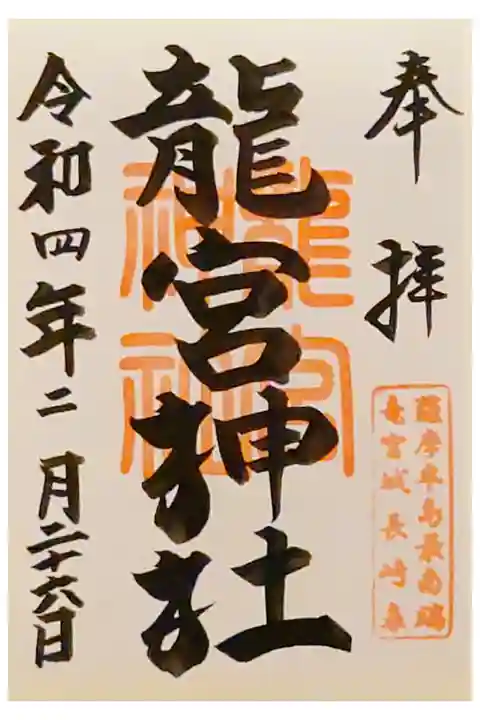 奉拝
薩摩半島最南端
竜宮城長崎鼻
龍宮神社
龍宮
神社
令和四年二月二十六日